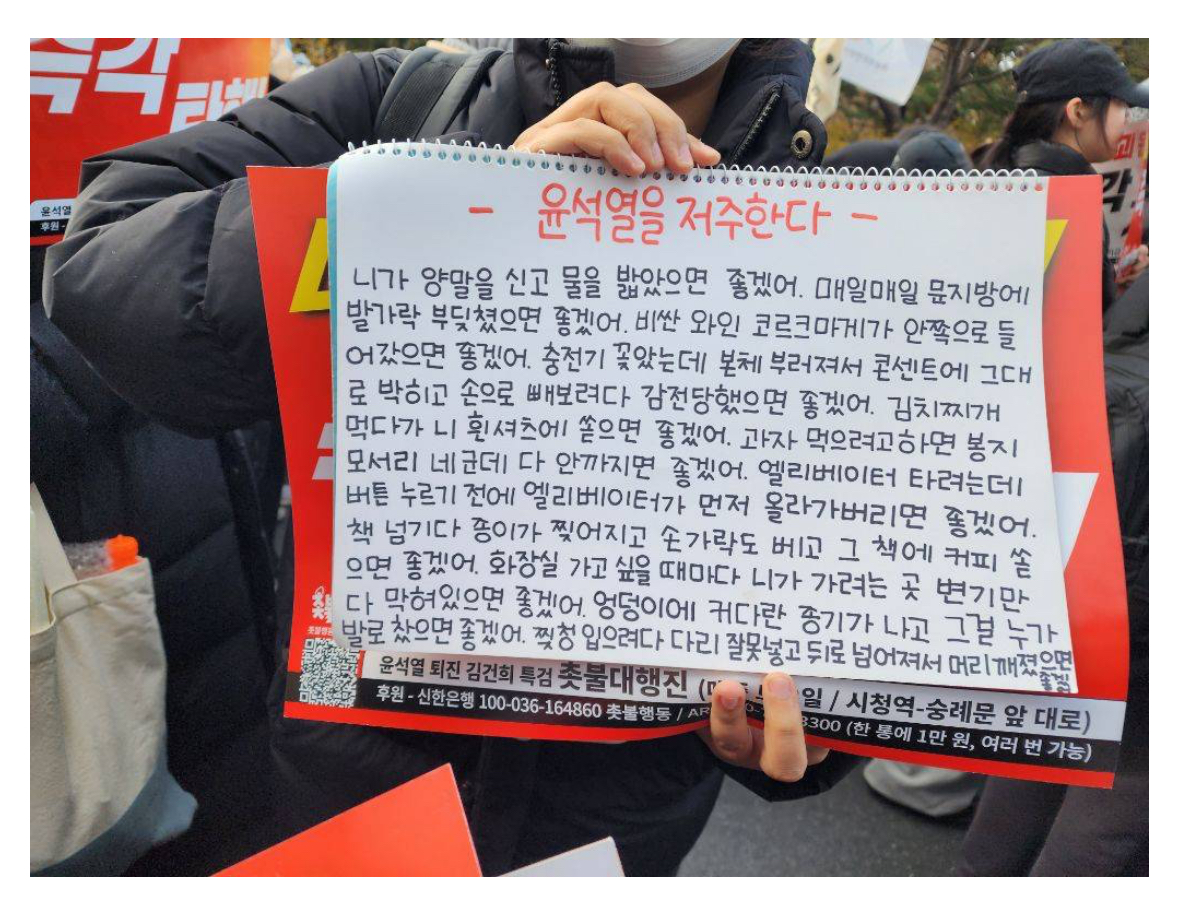 즉각
탄핵
윤석열
후원 -
- 윤석열을 저주한다 -
니가 양말을 신고 물을 밟았으면 좋겠어. 매일매일 문지방에
발가락 부딪쳤으면 좋겠어. 비싼 와인 코르크마게가 안쪽으로 들
어갔으면 좋겠어. 충전기 꽂았는데 본체 부러져서 콘센트에 그대
로 박히고 손으로 빼보려다 감전당했으면 좋겠어. 김치찌개
먹다가 니 흰셔츠에 쏟으면 좋겠어. 과자 먹으려고하면 봉지
모서리 네군데 다 안까지면 좋겠어. 엘리베이터 타려는데
버튼 누르기 전에 엘리베이터가 먼저 올라가버리면 좋겠어.
책 넘기다 종이가 찢어지고 손가락도 베고 그 책에 커피 쏟
으면 좋겠어. 화장실 가고 싶을 때마다 니가 가려는 곳 변기만
다 막혀있으면 좋겠어. 엉덩이에 커다란 종기가 나고 그걸 누가
발로 찼으면 좋겠어. 찢청 입으려다 다리 잘못넣고 뒤로 넘어져서 머리 깨졌으면
좋겠
윤석열 퇴진 김건희 특검 촛불대행진 / 시청역-숭례문 앞 대로)
후원 - 신한은행 100-036-164860 촛불행동 / 3300 (한 통에 1만 원, 여러 번 가능)